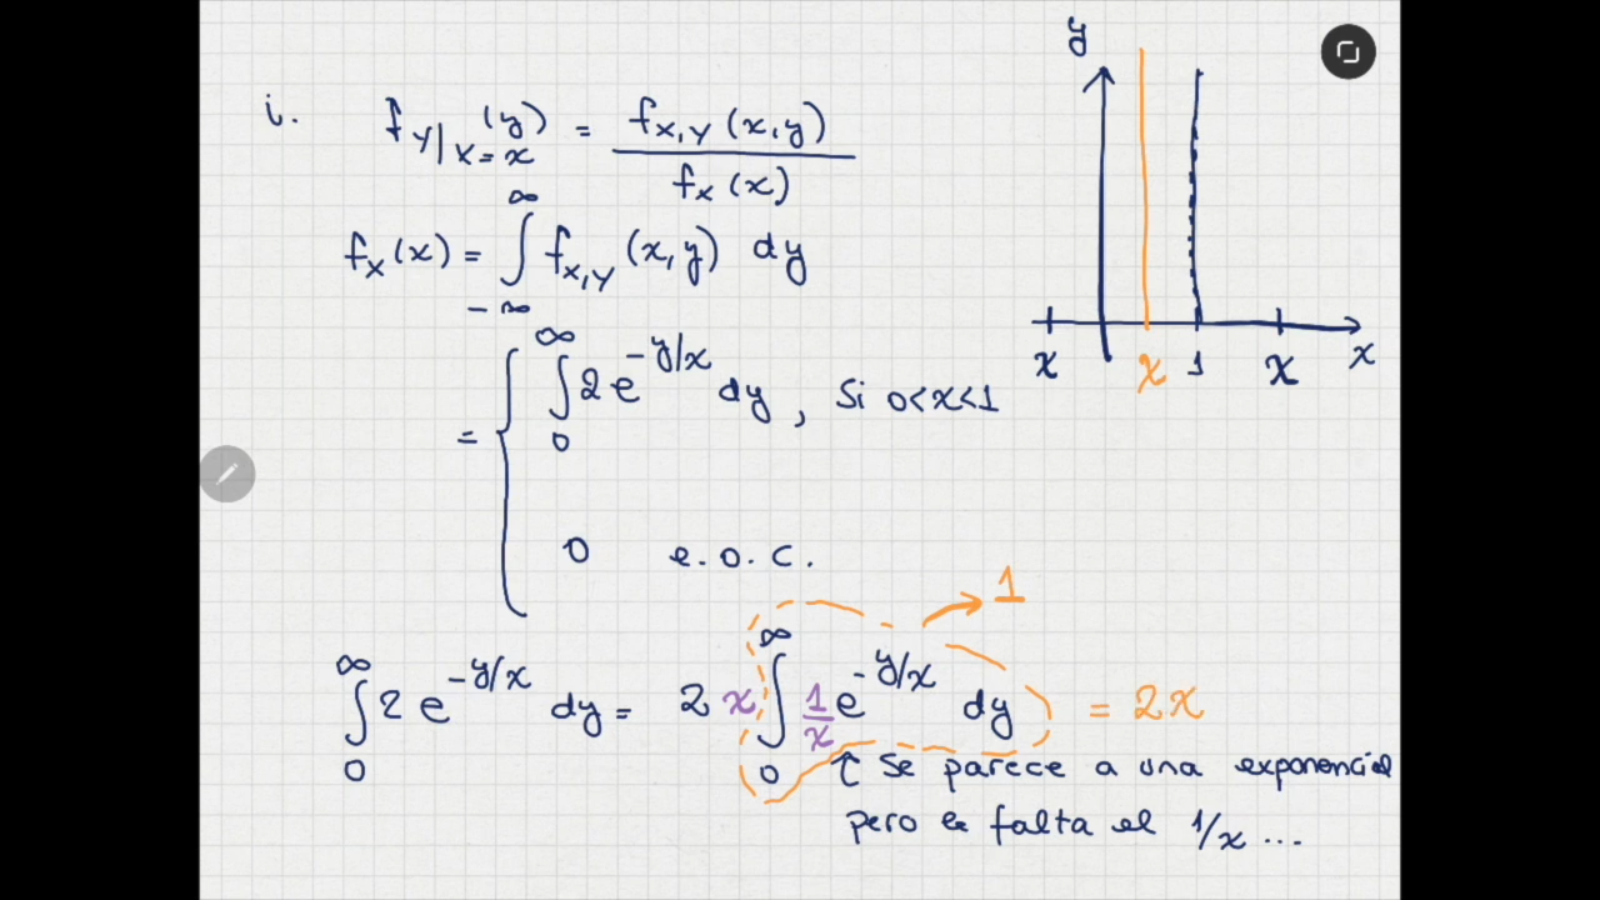 i. f_{Y|X=x}(y) = f_{X,Y}(x,y) / f_X(x)
f_X(x) = ∫_{-∞}^{∞} f_{X,Y}(x,y) dy
= { ∫_0^∞ 2e^{-y/x} dy, Si 0<x<1
0 e.o.c.
y
x x 1 x x
1
∫_0^∞ 2e^{-y/x} dy = 2x ∫_0^∞ 1/x e^{-y/x} dy = 2x
↑ Se parece a una exponencial
pero le falta el 1/x ...